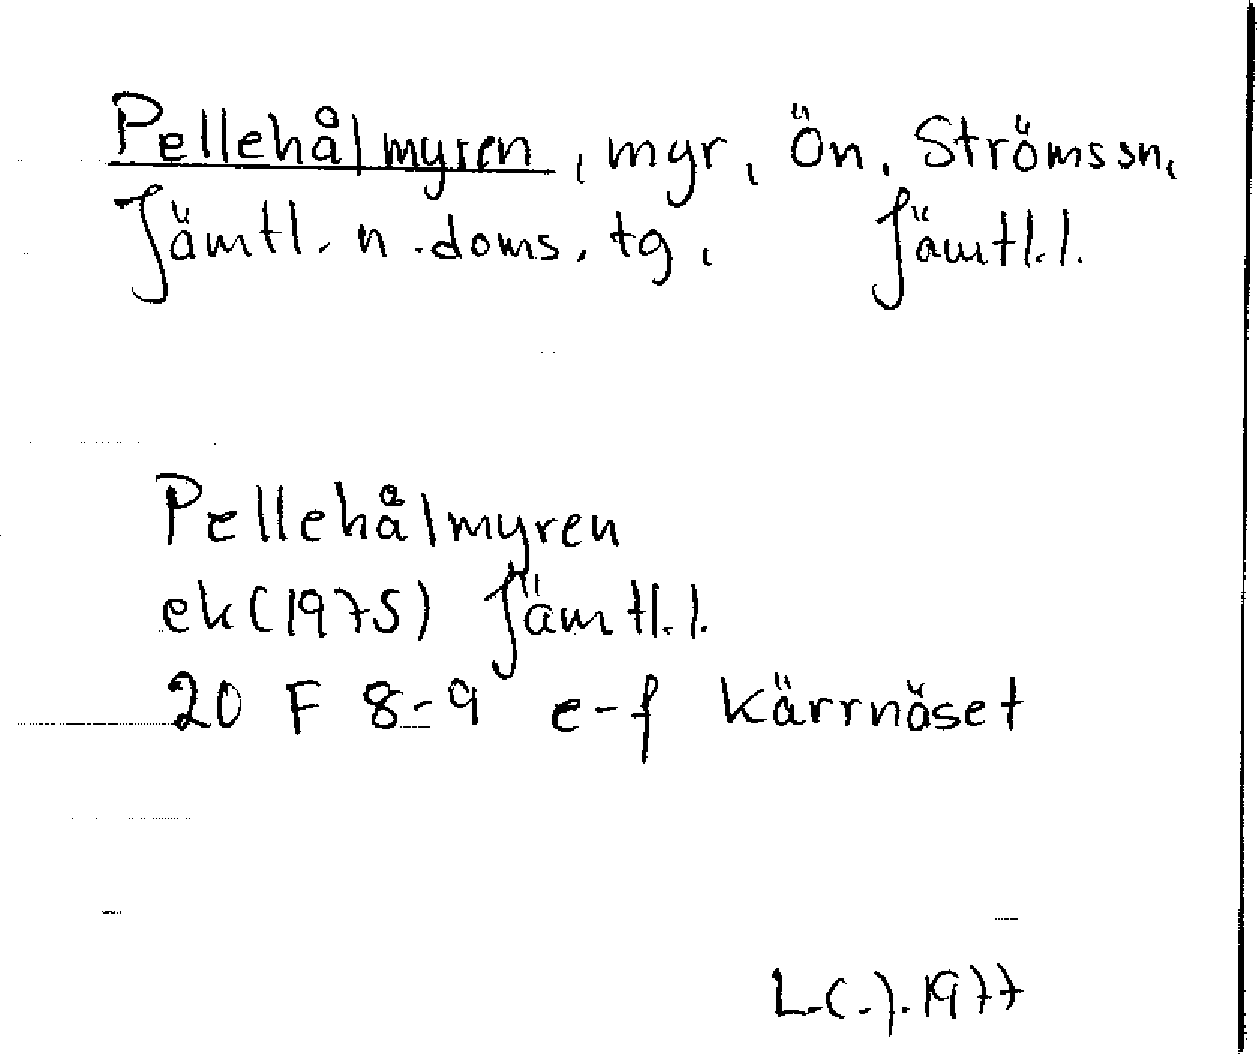 Pellehålmyren, myr, Ön, Ströms sn,
Jämtl. n. doms. tg, Jämtl. l.
Pellehålmyren
ek (1975) Jämtl. l.
20 F 8-9 e-f Kärrnäset
1977